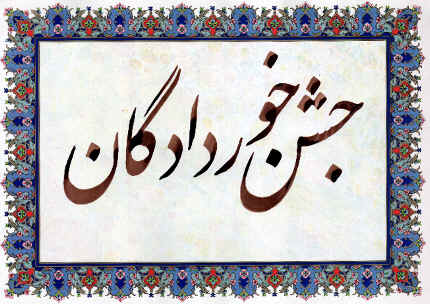 جشن خوردادگان